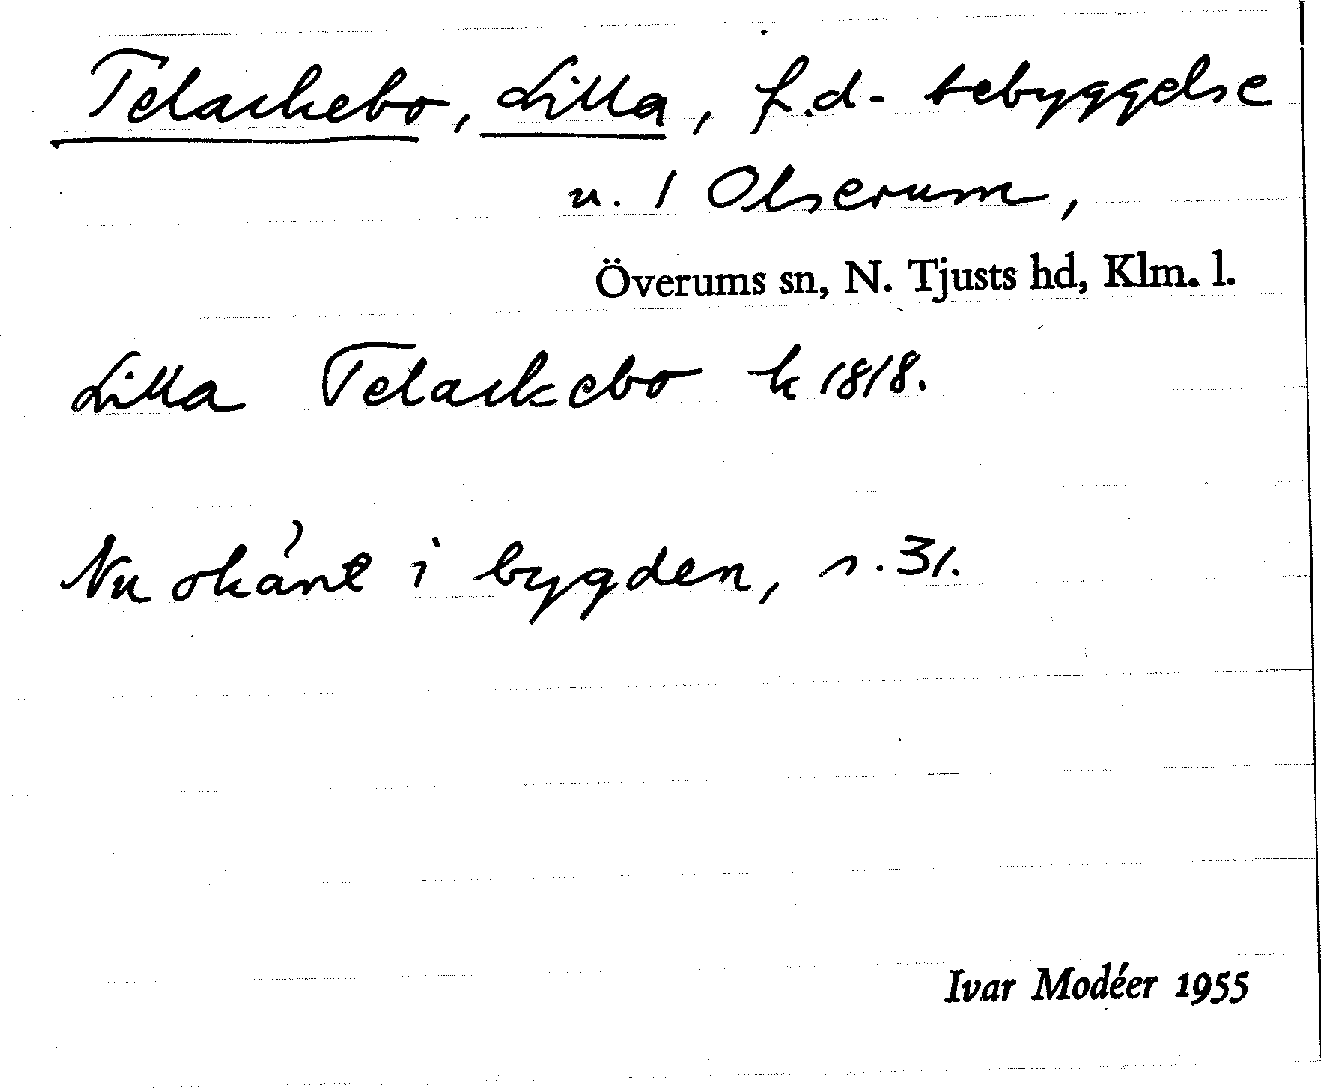 Telaskebo, Lilla, f.d. bebyggelse
u. 1 Olserum,
Överums sn, N. Tjusts hd, Klm. l.
Lilla Telaskebo k 1818.
Nu okänt i bygden, s. 31.
Ivar Modéer 1955